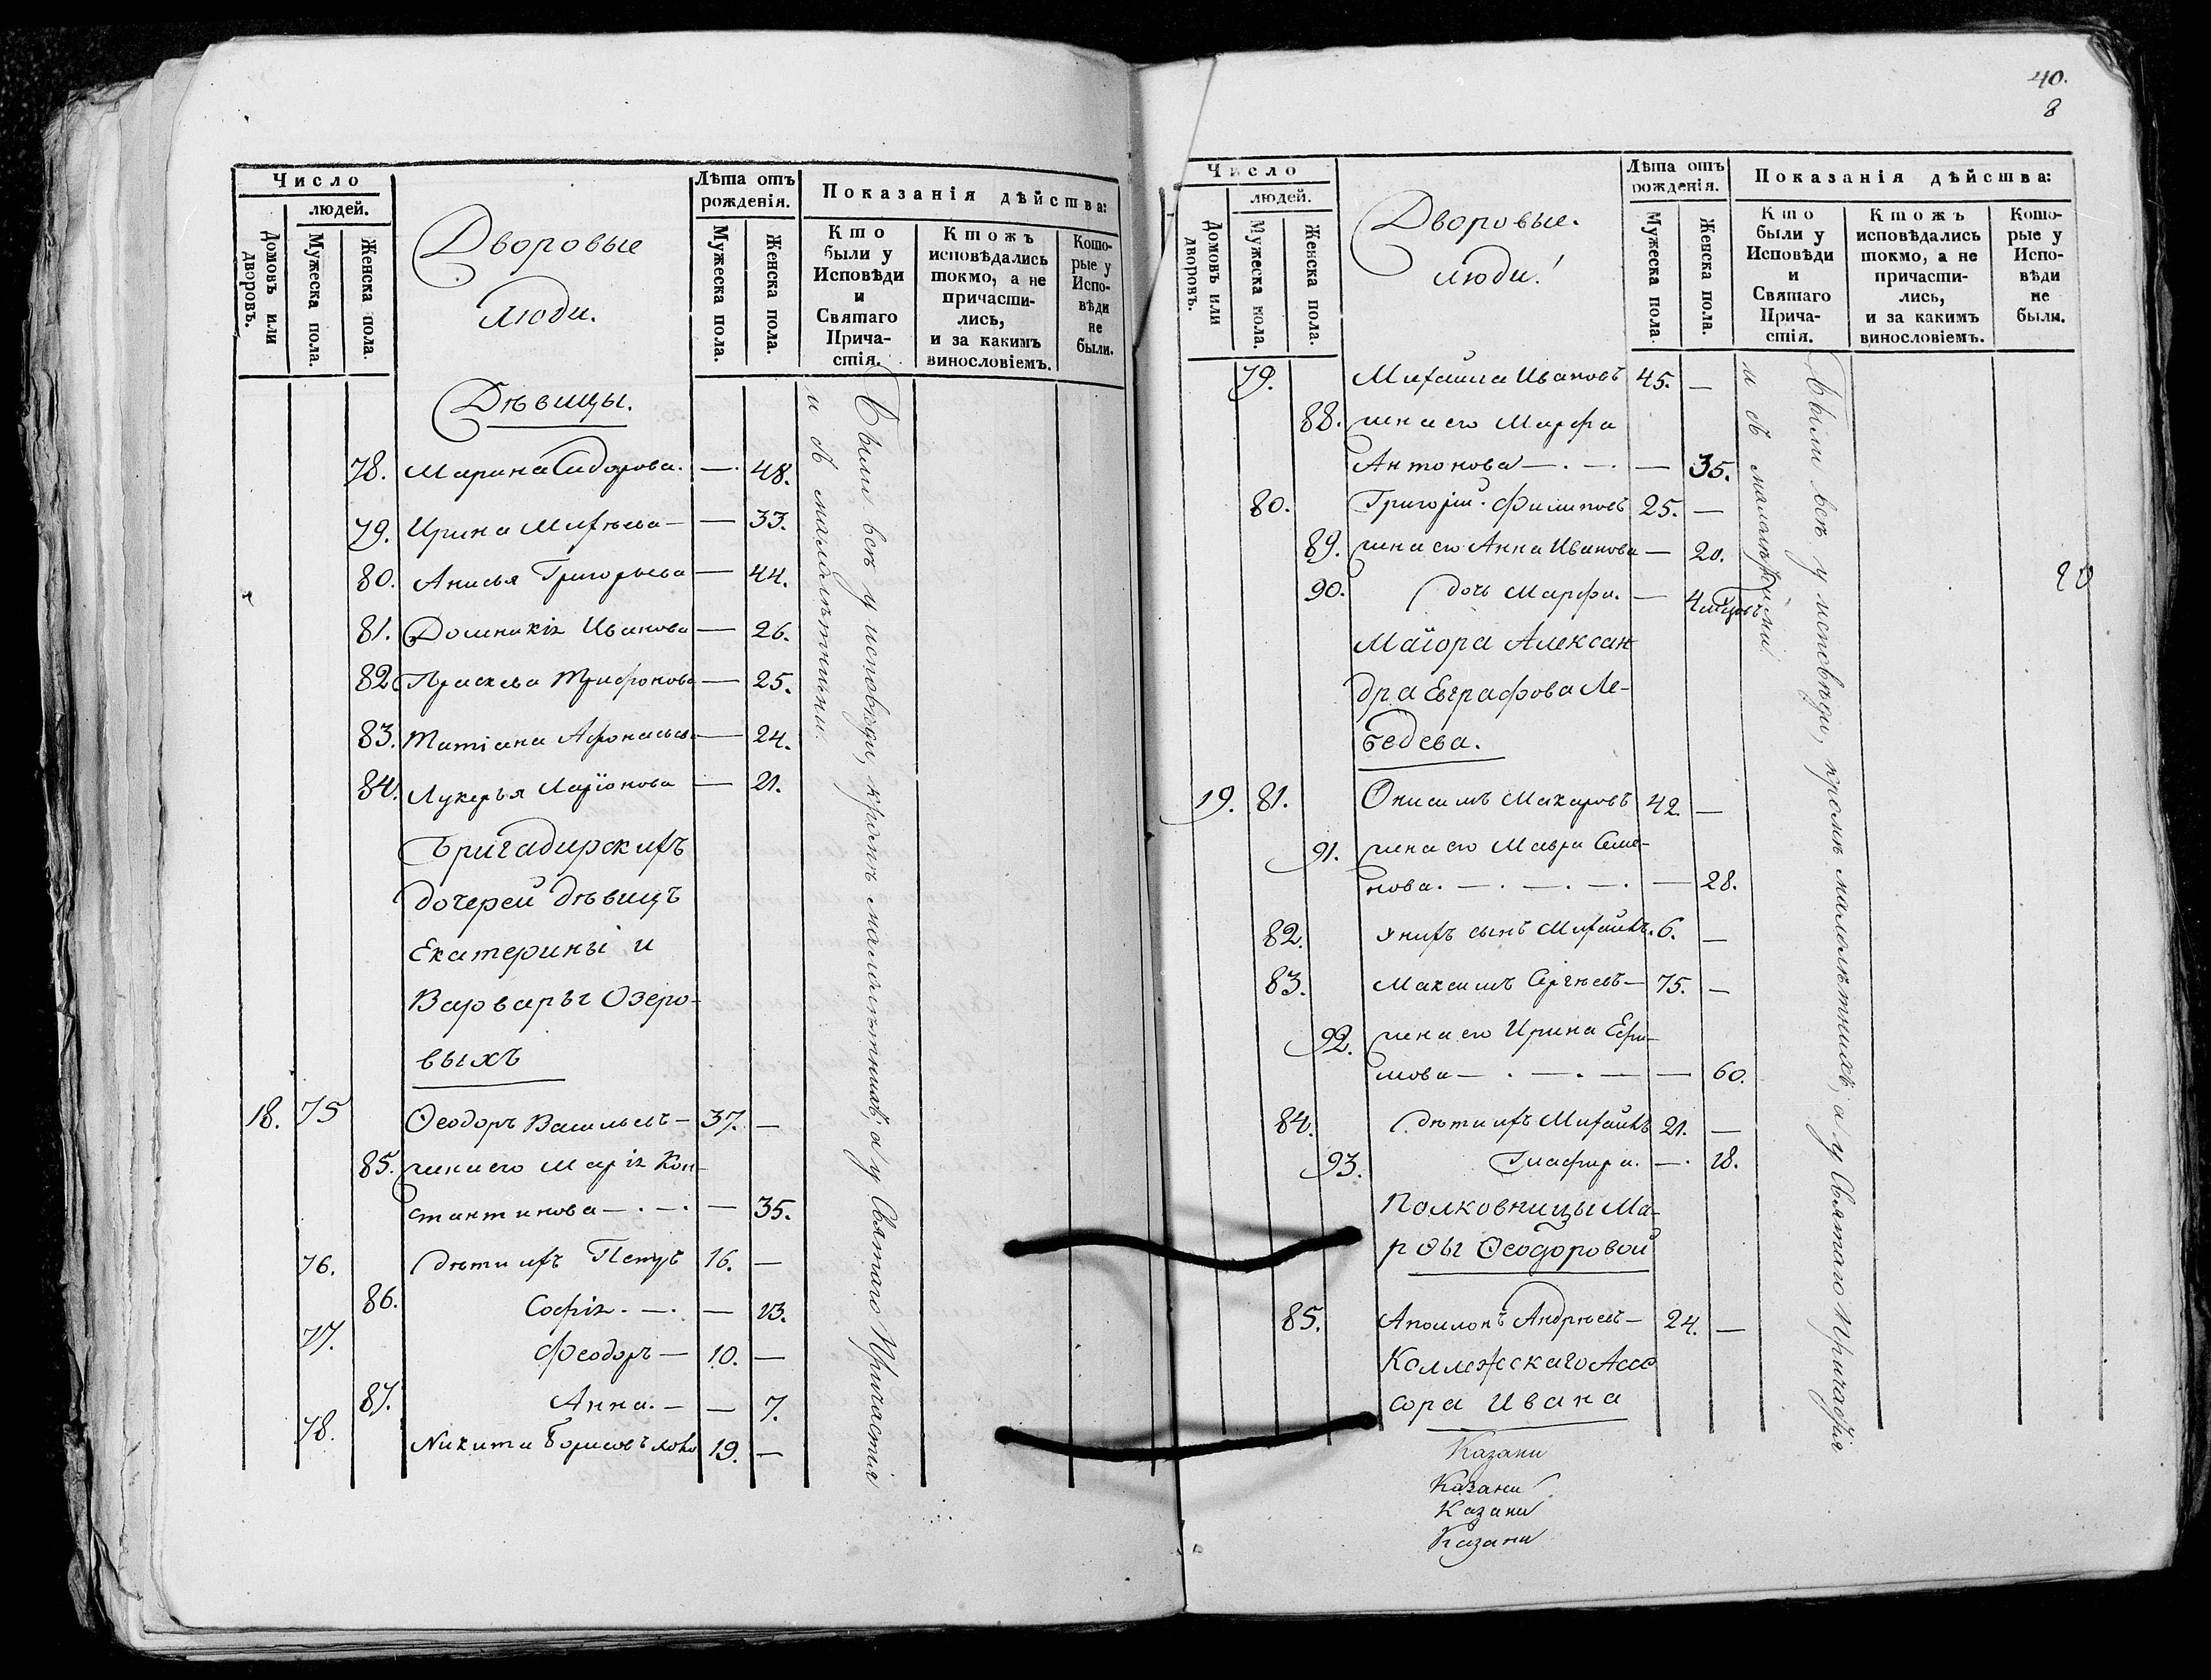 Число
людей.
Домовъ или дворовъ.
Мужеска пола.
Женска пола.
Дворовые
люди.
Лѣта отъ
рожденія.
Мужеска пола.
Женска пола.
Показанія дѣйства:
Кто
были у
Исповѣди
и
Святаго
Прича-
стія.
Ктожъ
исповѣдались
токмо, а не
причасти-
лись,
и за какимъ
винословіемъ.
Кото-
рые у
Испо-
вѣди
не
были.
Дѣвицы.
78. Марина Сидорова. — 48.
79. Ирина Михѣева — 33.
80. Анисья Григорьева — 44.
81. Домникія Иванова — 26.
82 Праскева Трифонова — 25.
83. Татіана Афонасьева — 24.
84. Лукерья Ларіонова — 21.
Бригадирскихъ
дочерей дѣвицъ
Екатерины и
Варвары Озеро-
выхъ
18. 75 Ѳеодоръ Васильевъ — 37. —
85. жена его Марія Кон-
стантинова — . — . — 35.
76. дѣти ихъ Петръ 16. —
86. Софія . — . — 13.
77. Феодоръ — 10. —
87. Анна. — — 7.
78. Никита Борисовъ 19. —
Были всѣ у исповѣди, кромѣ малолѣтнихъ; а у Святаго Причастія
и съ малолѣтними.
40.
8
Число
людей.
Домовъ или дворовъ.
Мужеска пола.
Женска пола.
Дворовые.
люди!
Лѣта отъ
рожденія.
Мужеска пола.
Женска пола.
Показанія дѣйства:
Кто
были у
Исповѣди
и
Святаго
Прича-
стія.
Ктожъ
исповѣдались
токмо, а не
причасти-
лись,
и за какимъ
винословіемъ.
Кото-
рые у
Испо-
вѣди
не
были.
79. Михаила Ивановъ 45. —
88. жена его Марфа
Антонова — . — . — 35.
80. Григорій Филиповъ 25. —
89. жена его Анна Иванова — 20.
90. дочь Марфа. — 4
Маіора Алексан
дра Евграфова Ле-
бедева.
19. 81. Онисимъ Макаровъ 42. —
91. жена его Мавра Семе-
нова. — . — . — . — 28.
82. у нихъ сынъ Михайлъ. 6. —
83. Максимъ Сергѣевъ — 75. —
92. жена его Ирина Ефи-
мова — . — . — — 60.
84. дѣти ихъ Михайлъ 21. —
93. Глафира. — . 18.
Полковницы Ма-
рѳы Ѳеодоровой
85. Аполлонъ Андреевъ — 24. —
Коллежскаго Ассе
сора Ивана
Казани
Казани
Казани
Казани
Были всѣ у исповѣди, кромѣ малолѣтнихъ; а у Святаго Причастія
и съ малалѣтними